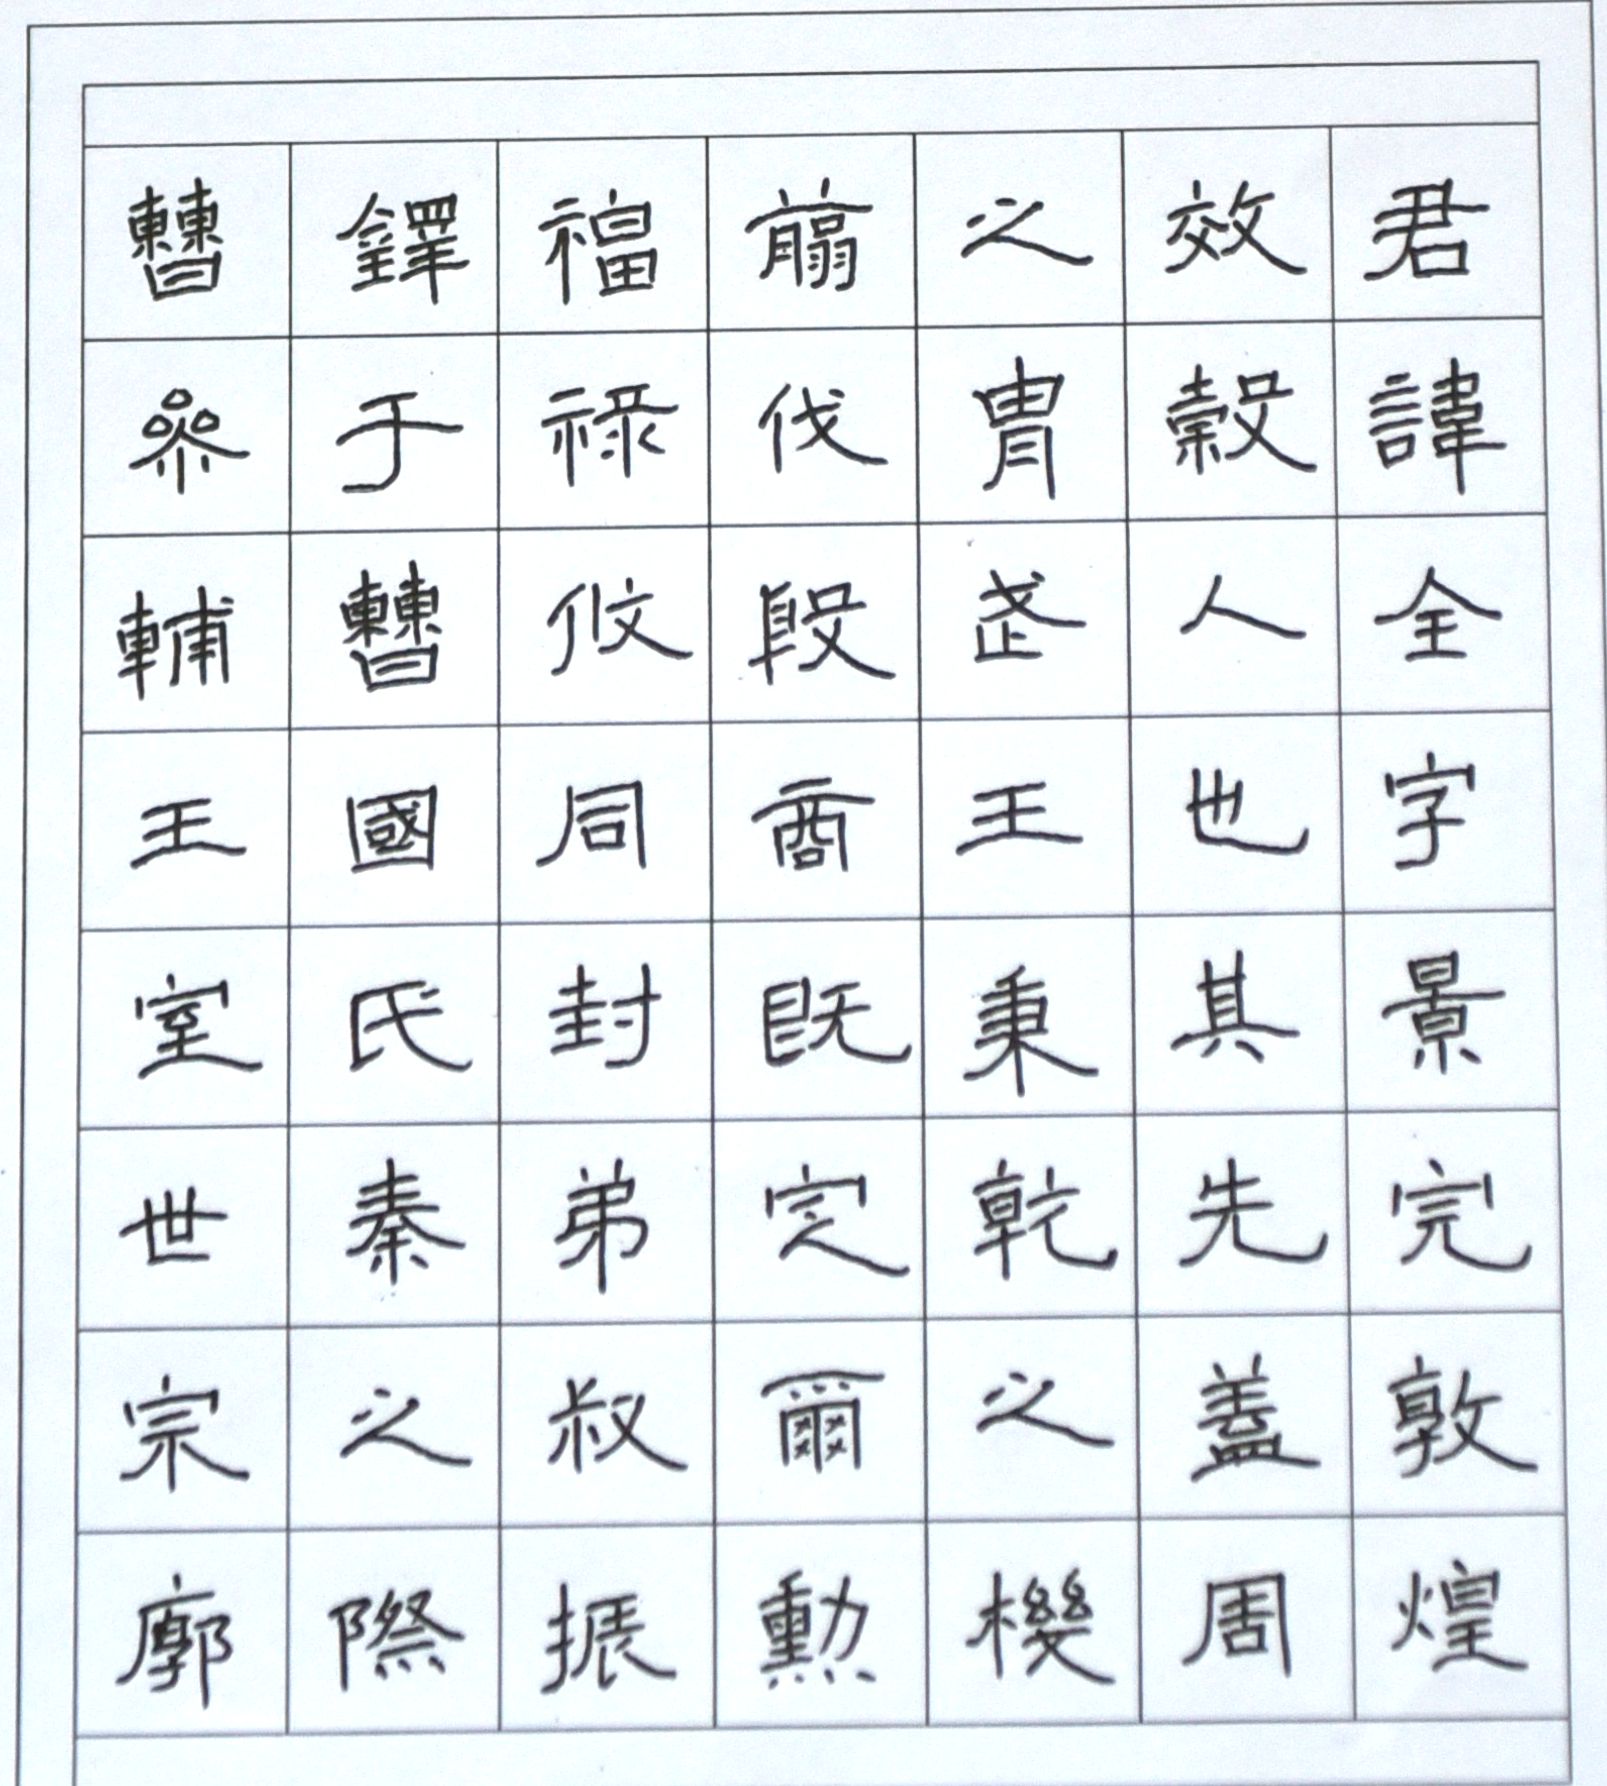 君諱全字景完敦煌
效穀人也其先蓋周
之胄武王秉乾之機
翦伐殷商既定爾勳
福祿攸同封弟叔振
鐸于曹國氏秦之際
曹參輔王室世宗廓